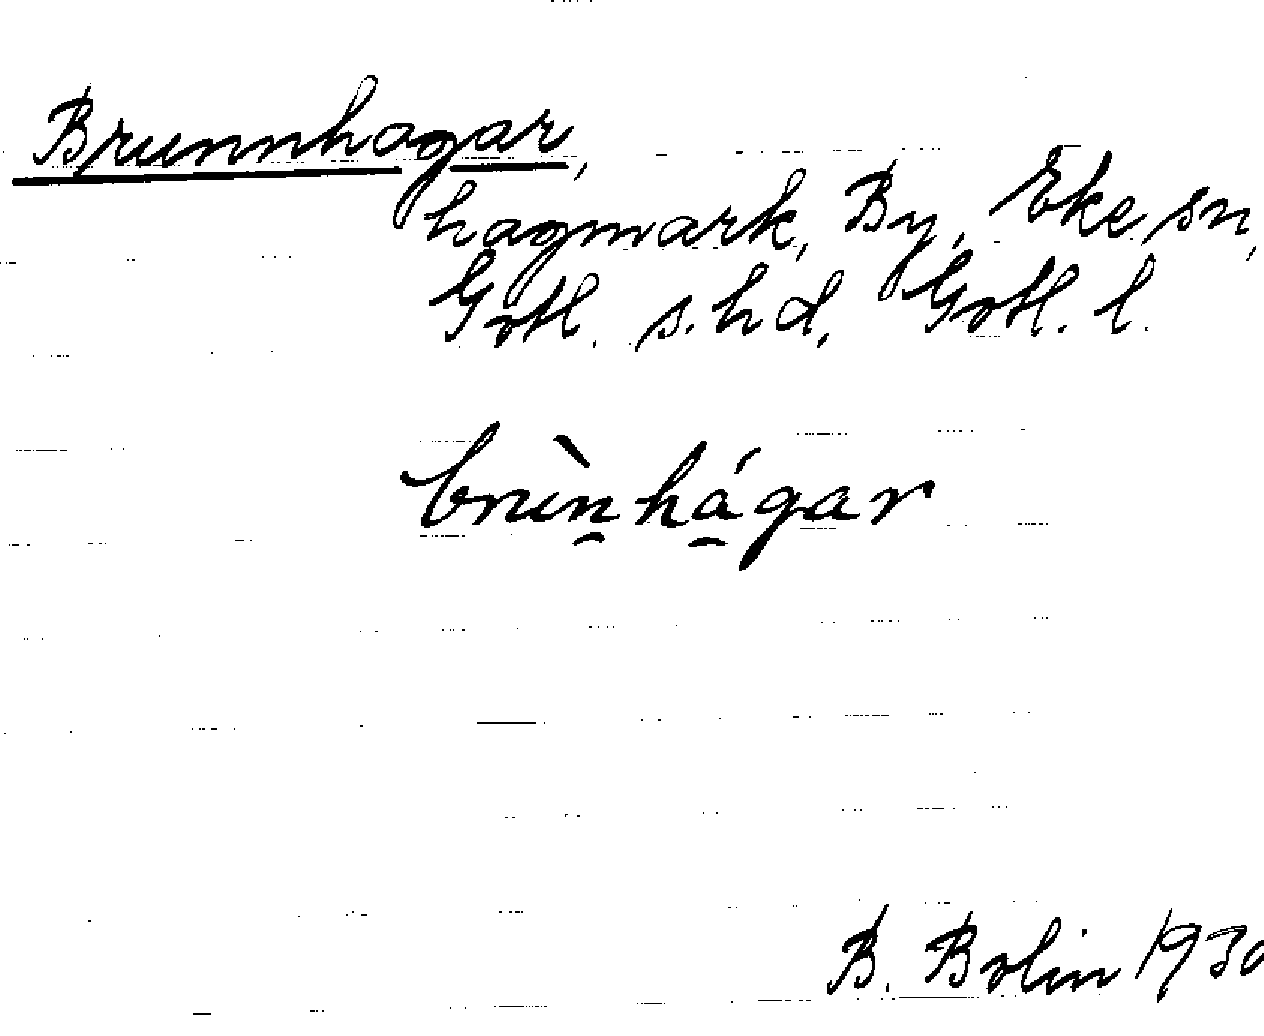 Brunnhagar,
hagmark, By, Eke sn,
Gotl. s. hd, Gotl. l.
brùn̯há̯gar
B. Bolin 1930